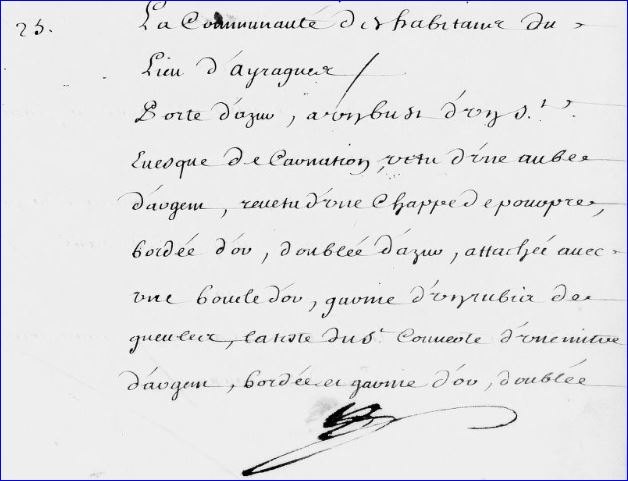 25. La Communauté des habitans du
Lieu d'Ayragues
Porte d'azur, a un bust d'un St.
Evesque de Carnation, vetu d'une aube
d'argent, revetu d'une Chappe de pourpre,
bordée d'or, doublée d'azur, attachée avec
une boucle d'or, garnie d'un rubis de
gueules, la teste du St. Couverte d'une mitre
d'argent, bordée et garnie d'or, doublée